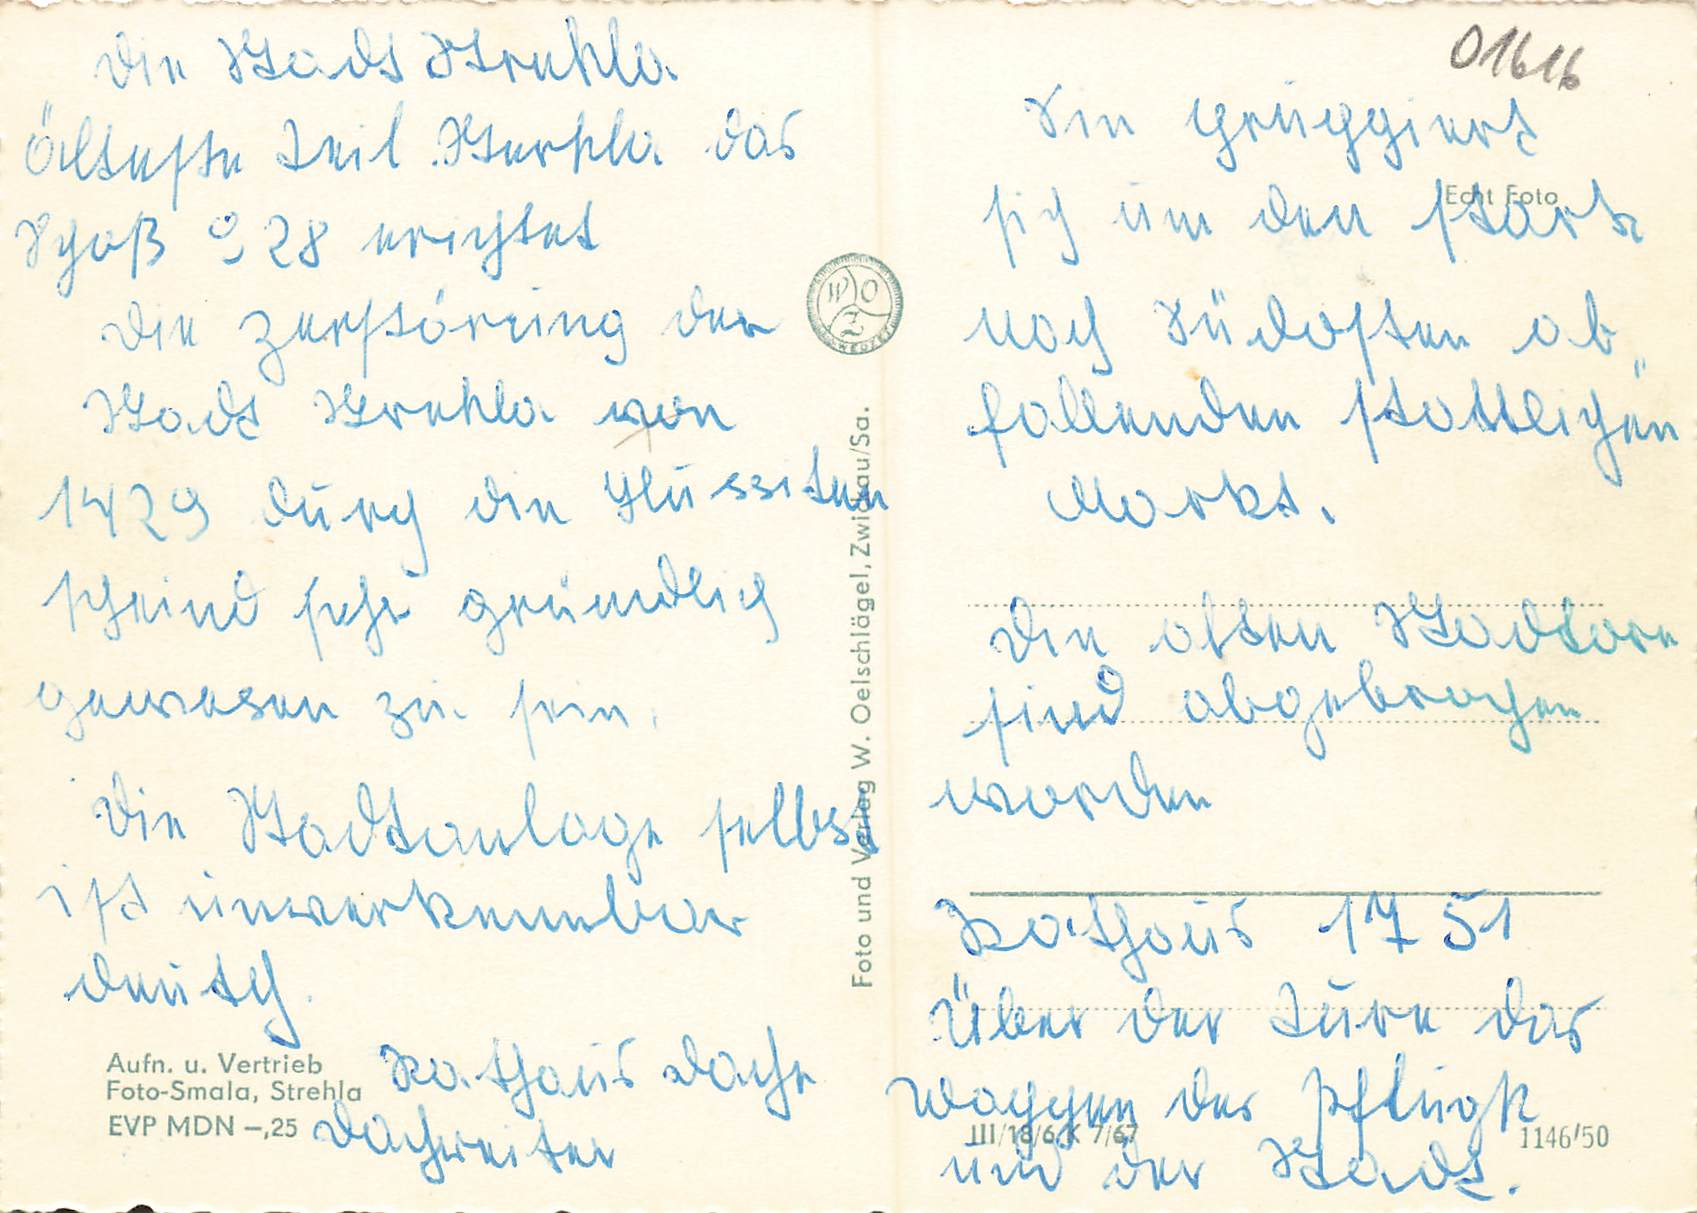 die Stadt Strehla
Ältester Teil Sterhla das
Schoß 928 erichtet
die zerstörung der
Stadt Strehla von
1429 durch die Hussiten
scheind sehr gründlich
gewesen zu sein.
Die Stadtanlage selbst
ist unverkennbar
deutsch.
Rathaus Dache
Dachreiter
Aufn. u. Vertrieb
Foto-Smala, Strehla
EVP MDN –,25
WOZ
Foto und Verlag W. Oelschlägel, Zwickau/Sa.
01616
Echt Foto
Sie gruppiert
sich um den stark
nach Südosten ab„
fallenden stattlichen
Markt.
Die alten Stadtore
sind abgebrochen
worden
Rathaus 1751
Über der Türe das
Wappen der Pflugk
und der Stadt.
III/18/6 K 7/67
1146/50